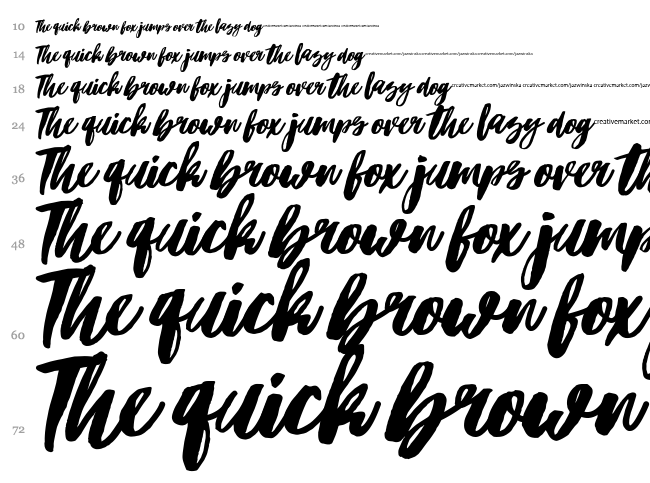 10 The quick brown fox jumps over the lazy dog
14 The quick brown fox jumps over the lazy dog creativemarket.com/jazwinska creativemarket.com/jazwinska creativemarket.com/jazwinska
18 The quick brown fox jumps over the lazy dog creativemarket.com/jazwinska creativemarket.com/jazwinska creativemarket.com/jazw
24 The quick brown fox jumps over the lazy dog creativemarket.com
36 The quick brown fox jumps over th
48 The quick brown fox jump
60 The quick brown fox
72 The quick brown